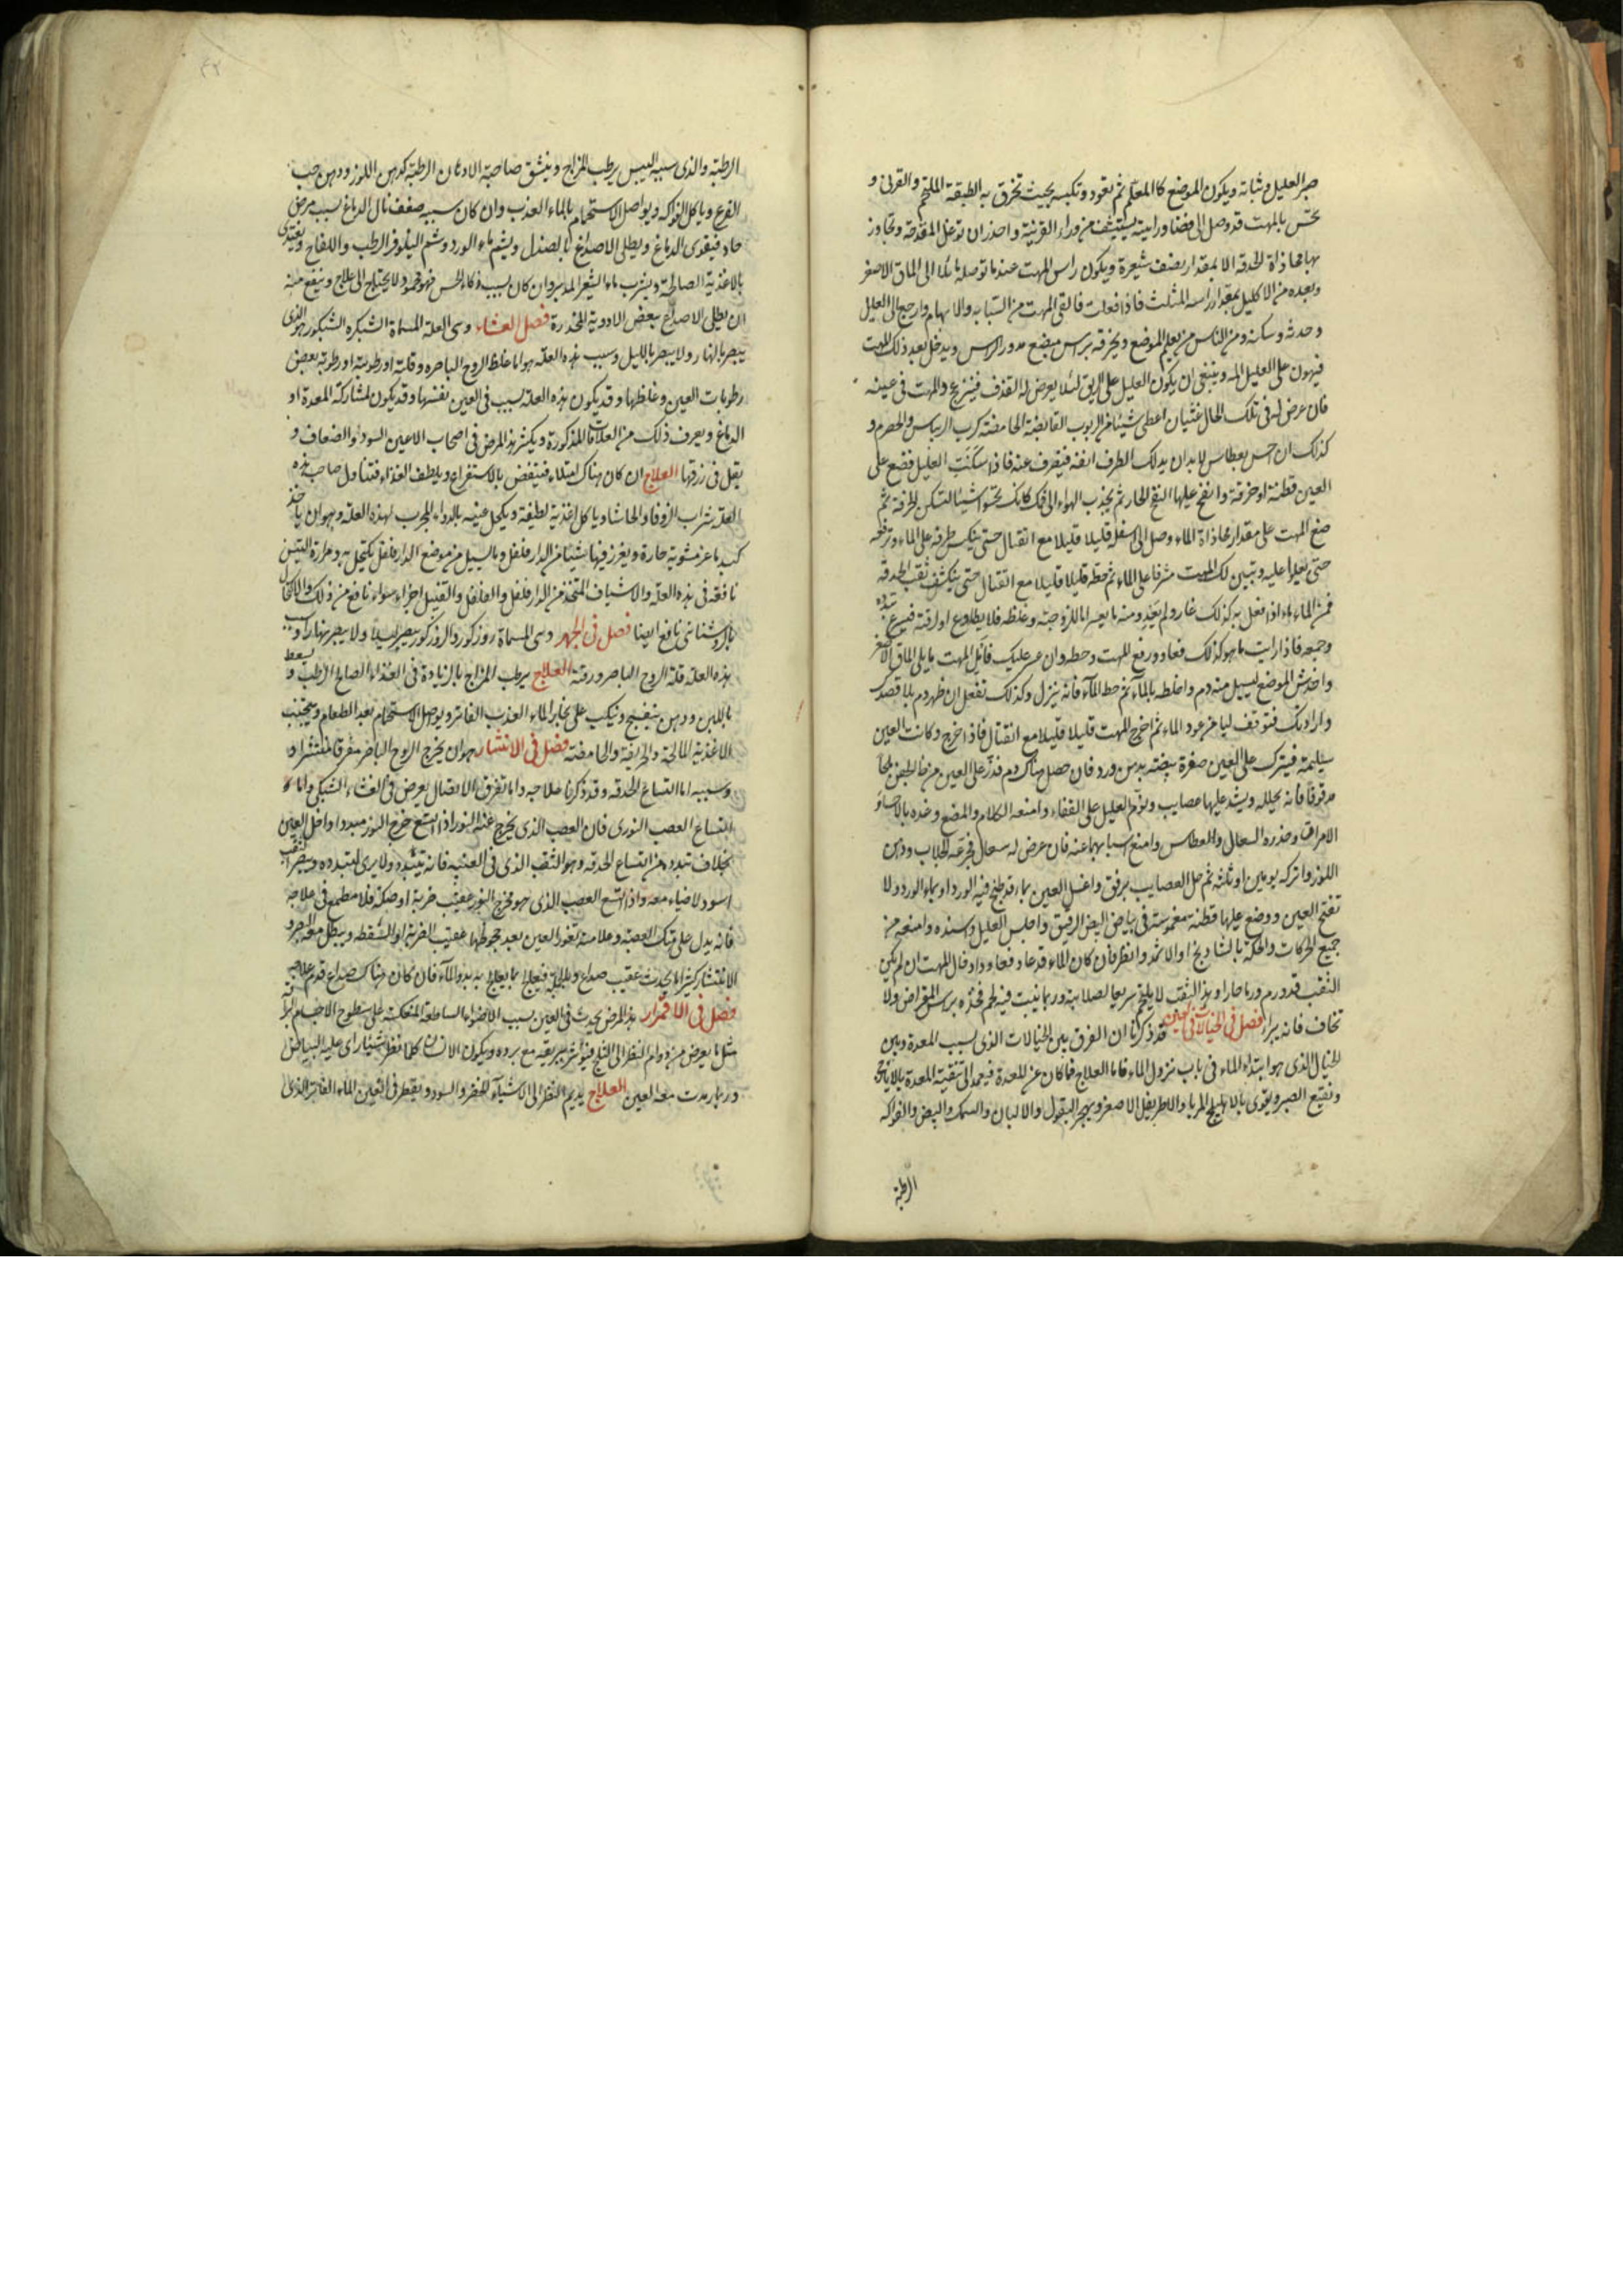 صبر العليل وثباته ويكون الموضع كالمعلم ثم تعود وتكبسه بحيث تخرق به الطبقة الملتحم والقرنى و
تحس بالمهت قد وصل الى فضاء ورايته يستشف من وراء القرنية واحذر ان توغل المقدحة وتجاوز
بها محاذاة الحدقة الا بمقدار نصف شعيرة ويكون راس المهت عندما توصله مائلا الى الماق الاصغر
وبعده من الاكليل بمقدار راسه المثلث فاذا فعلت فالق المهت من السبابه والابهام وارجع الى العليل
وحدثه وسكنه ومن الناس من يعلم الموضع ويخرقه براس مبضع مدور الراس ويدخل بعد ذلك المهت
فيهون على العليل المه وينبغى ان يكون العليل على الريق لئلا يعرض له القذف فينزعج والمهت فى عينه
فان عرض له فى تلك الحال غثيان اعطى شيئا من الربوب القابضة الحامضة كرب الريباس والحصرم و
كذلك ان احس بعطاس لا بد ان يدلك الطرف انفه فيتفرق عنه فاذا سكنت العليل فضع على
العين قطنة او خرقة وانفخ عليها النفخ الحار ثم يجذب الهواء الى فيك كانك تحسوا شيئا لتسكن الحرقة ثم
ضع المهت على مقدار محاذاة الماء وصل الى اسفله قليلا قليلا مع انفتال حتى ينكس طرفه على الماء وترفعه
حتى يعلوا عليه وتبين لك المهت مشرفا على الماء ثم حطه قليلا قليلا مع انفتال حتى ينكشف ثقب الحدقة
فمن الماء ماء اذا فعل به كذلك غار ولم يعد ومنه ما يعسر اما للزوجته وغلظه فلا يطاوع او لرقته فيسرع تبدده
وجمعه فاذا رايت ما هو كذلك فعاود ورفع المهت وحطه وان عسر عليك فامل المهت مما يلى الماق الاصغر
واخدش الموضع ليسيل منه دم واخلطه بالماء ثم حط الماء فانه ينزل وكذلك تفعل ان ظهر دم بلا قصدك
وارادتك فتوقف ليامن عود الماء ثم اخرج المهت قليلا قليلا مع انفتال فاذا خرج وكانت العين
سليمة فيترك على العين صفرة بيضة بدهن ورد فان حصل هناك دم فذر على العين من خارج الجفن ملحا
مدقوقا فانه يحلله ويشد عليها عصايب ونوّم العليل على القفاء وامنعه الكلام والمضغ وغذه بالاحساء
الامراق وحذره السعال والعطاس وامنع اسبابهما عنه فان عرض له سعال فجرعه الجلاب ودهن
اللوز واتركه يومين او ثلثه ثم حل العصايب برفق واغسل العين بماء قد طبخ فيه الورد او بماء الورد ولا
تفتح العين ووضع عليها قطنة مغموسة فى بياض البيض الرقيق واجلس العليل واسنده وامنعه من
جميع الحركات والحكة بالشاديخ او الاثمد وانظر فان كان الماء قد عاد فعاود ادخال المهت ان لم يكن
الثقب قد ورم ورما حارا وهذا الثقب لا يلتحم سريعا لصلابته وربما نبت فيه لحم فخذه براس المقراض ولا
تخاف فانه يبرا فصل فى الخيالات فى العين قد ذكرنا ان الفرق بين الخيالات الذى بسبب المعدة وبين
الخيال الذى هو ابتداء الماء فى باب نزول الماء فاما العلاج فما كان عن المعدة فيعمد الى تنقية المعدة بالايارج
ونقيع الصبر ويقوى بالاهليلج المربا والاطريفل الاصغر ويهجر البقول والالبان والسمك والبيض والفواكه
الرطبة
الرطبة والذى سببه اليبس يرطب المزاج وينشق صاحبه الادهان الرطبة كدهن اللوز ودهن حب
القرع وياكل الفواكه ويواصل الاستحمام بالماء العذب وان كان سببه ضعف نال الدماغ بسبب مرض
حاد فيقوى الدماغ ويطلى الاصداغ بالصندل ويشم ماء الورد وشم النيلوفر الرطب واللفاح ويغتذى
بالاغذية الصالحة ويشرب ماء الشعير المدبر وان كان بسبب ذكاء الحس فهو محمود لا يحتاج الى علاج وينفع منه
ان يطلى الاصداغ ببعض الادوية المخدرة فصل العشاء وسى العلة المسماة الشبكره الشبكور هو الذى
يبصر بالنهار ولا يبصر بالليل وسبب هذه العلة هو اما غلظ الروح الباصره وقلته او رطوبة او رطوبة بعض
رطوبات العين وغلظها وقد يكون هذه العلة بسبب فى العين نفسها وقد يكون لمشاركة المعدة او
الدماغ ويعرف ذلك من العلامات المذكورة ويكثر هذا المرض فى اصحاب الاعين السود والضعاف و
يقل فى زرقها العلاج ان كان هناك امتلاء فينفض بالاستفراغ ويلطف الغذاء فتناول صاحب هذه
العلة شراب الزوفا والحاشا وياكل اغذية لطيفة ويكحل عينيه بالدواء المجرب لهذه العلة وهو ان ياخذ
كبد ماعز مشوية حارة ويغرز فيها شيئا من الدارفلفل وما يسيل من موضع الدارفلفل يكتحل به ومرارة التيس
نافعة فى هذه العلة والاشياف المتخذ من الدارفلفل والفلفل والقنبيل اجزاء سواء نافع من ذلك والاكتحال
بالروشنائى نافع ايضا فصل فى الجهر وسى المسماة روزكور والروزكور يبصر ليلا ولا يبصر نهارا وسبب
هذه العلة قلة الروح الباصر ورقته العلاج يرطب المزاج بالزيادة فى الغذاء الصالح الرطب ويسعط
باللبن ودهن بنفسج وينكب على بخار الماء العذب الفاتر ويواصل الاستحمام بعد الطعام ويجتنب
الاغذية المالحة والحريفة والحامضة فصل فى الانتشار هو ان يخرج الروح الباصر متفرقا منتشرا و
وسببه اما اتساع الحدقة وقد ذكرنا علاجه واما تفرق الاتصال يعرض فى الغشاء الشبكى واما
اتساع العصب النورى فان العصب الذى يخرج عنه النور اذا اتسع خرج النور مبددا داخل العين
بخلاف تبدده من اتساع الحدقة وهو الثقب الذى فى العنبيه فانه يتبدد ولا يرى لتبدده ويبصر الثقب
اسود لا ضياء معه واذا اتسع العصب الذى هو مخرج النور عقيب ضربة او صكة فلا مطمع فى علاجه
فانه يدل على هتك العصبة وعلامته تغور العين بعد جحوظها عقيب الضربة او السقطه ويبطل معه البصر و
الانتشار كثيرا ما يحدث عقيب صداع فيعالج بما يعالج به بدو الماء فان كان هناك صداع قدم علاجه
فصل فى الاقمرار هذا المرض يحدث فى العين بسبب الاضواء الساطعة المنعكسة على سطوح الاجسام
مثل ما يعرض من دوام النظر الى الثلج فيؤثر بريقه مع برده ويكون الانسان كلما نظر شيئا راى عليه البياض
وربما رمدت معه العين العلاج يديم النظر الى الاشياء الخضر والسود ويقطر فى العين الماء الفاتر الذى